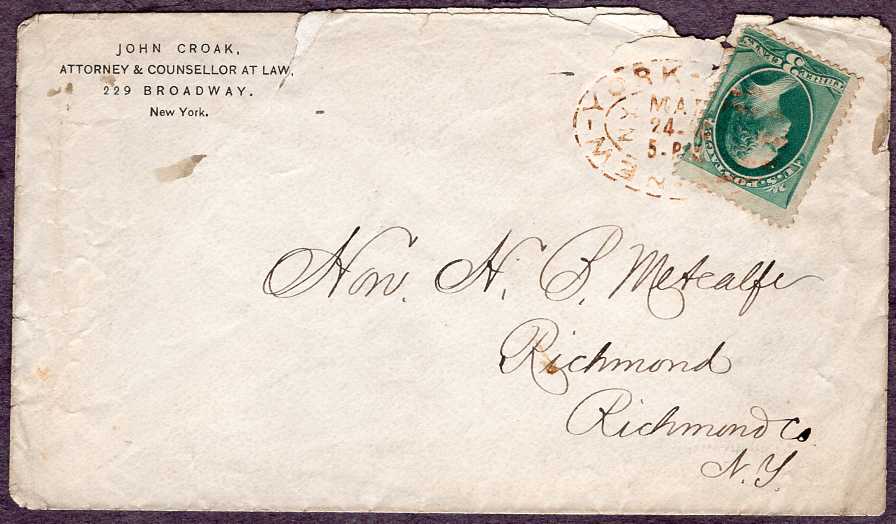 JOHN CROAK,
ATTORNEY & COUNSELLOR AT LAW,
229 BROADWAY.
New York.
NEW-YORK-
N.Y
MAR
24
5-P
Hon. H. B. Metcalfe
Richmond
Richmond Co
N.Y.